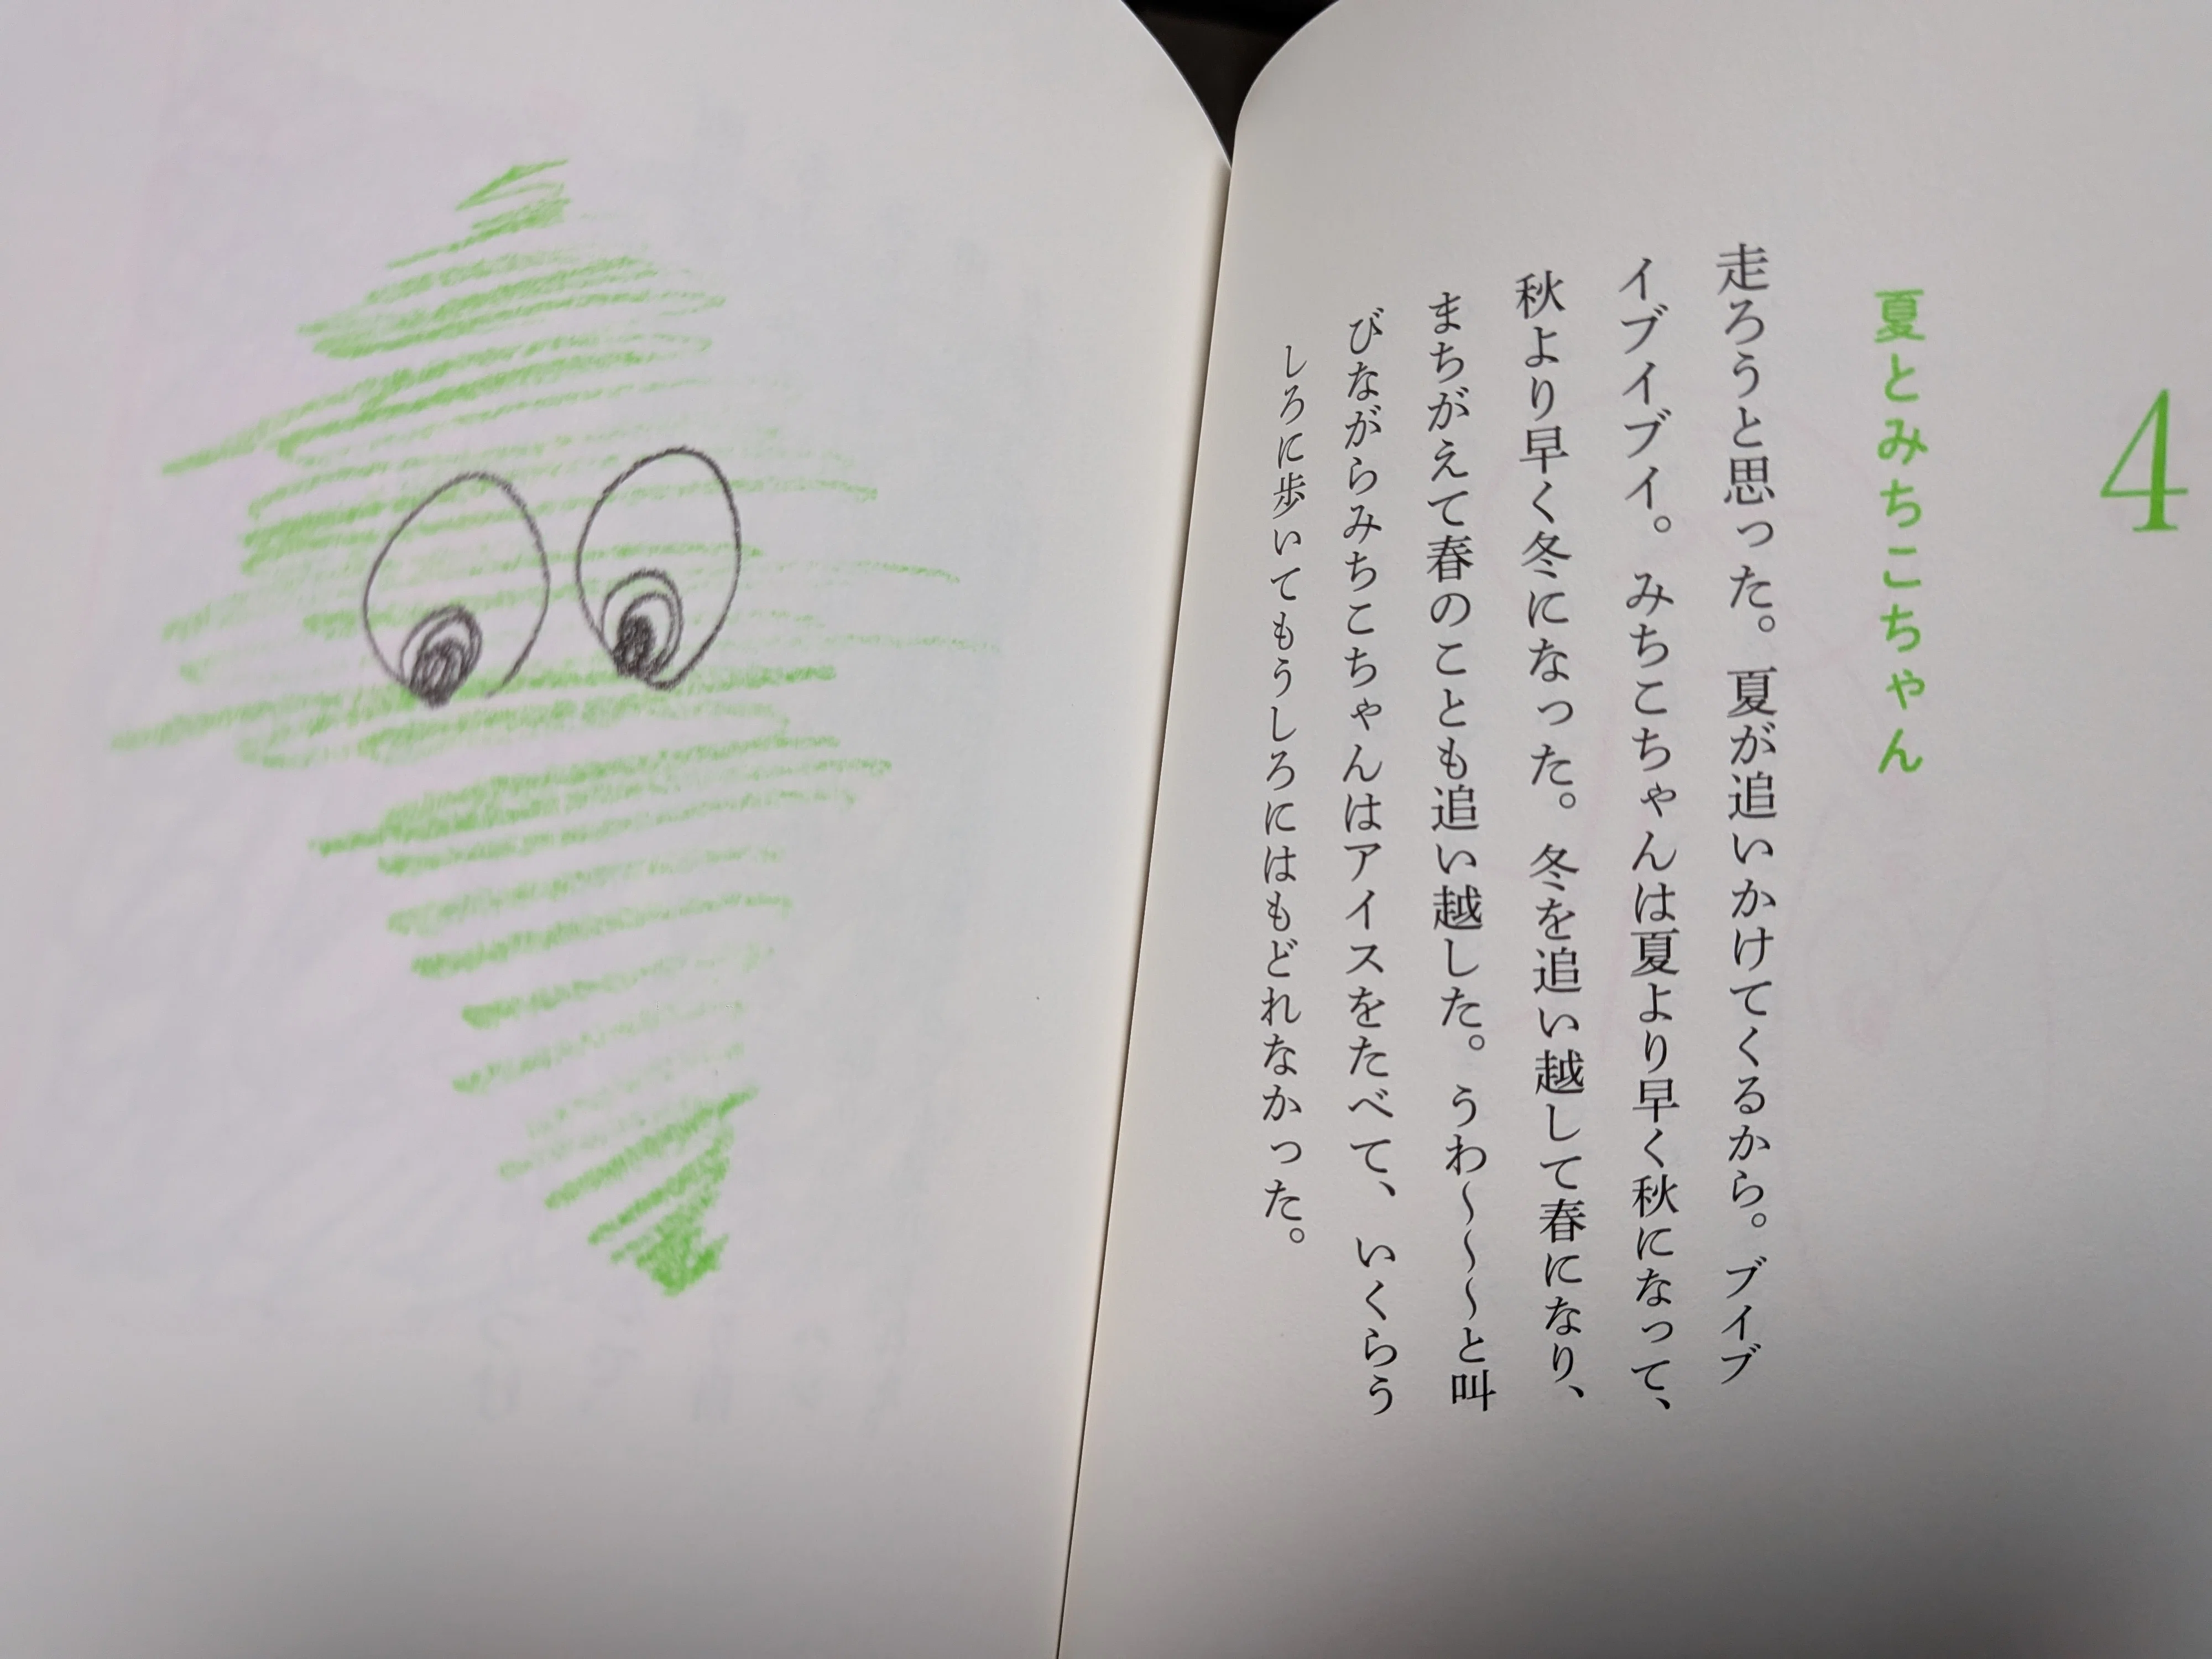 4
夏とみちこちゃん
走ろうと思った。夏が追いかけてくるから。ブイブ
イブイブイ。みちこちゃんは夏より早く秋になって、
秋より早く冬になった。冬を追い越して春になり、
まちがえて春のことも追い越した。うわ〜〜〜と叫
びながらみちこちゃんはアイスをたべて、いくらう
しろに歩いてもうしろにはもどれなかった。